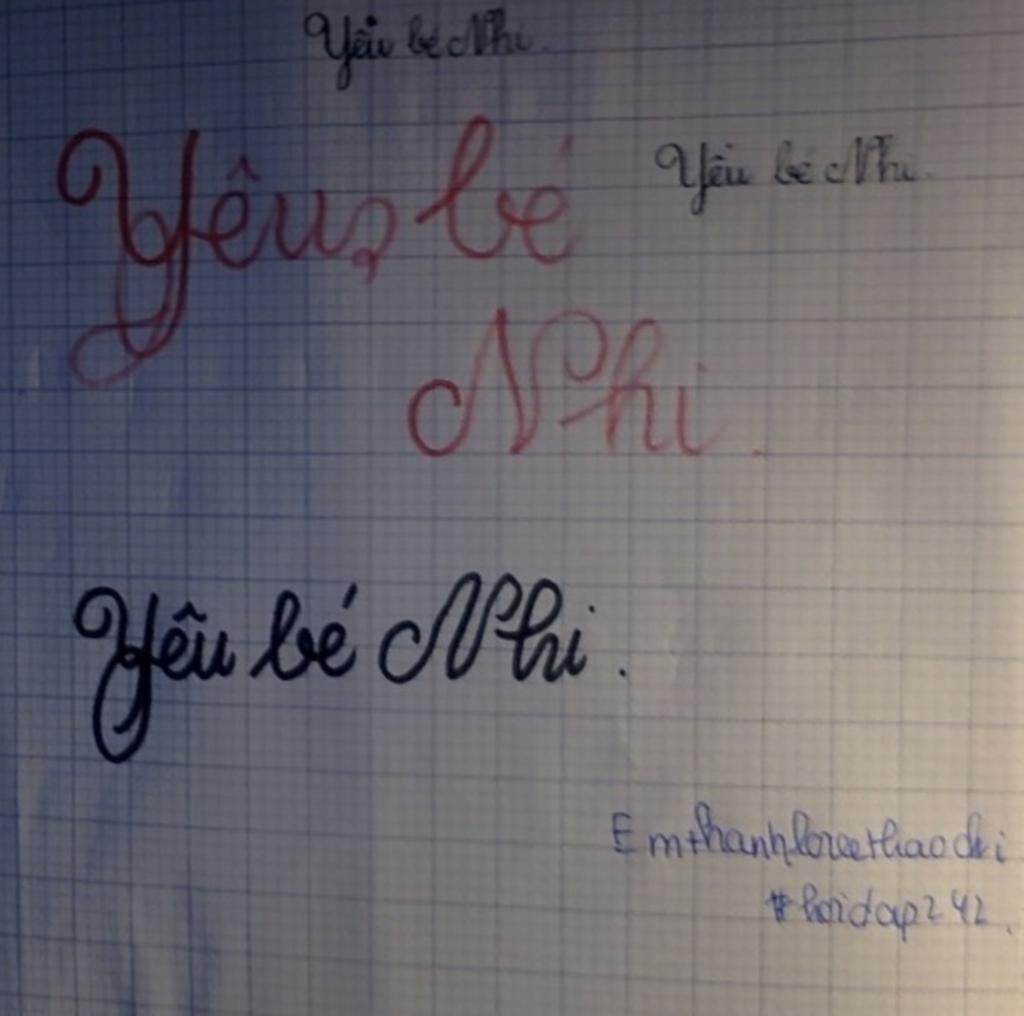 Yêu bé Nhi.
Yêu bé
Yêu bé Nhi.
Nhi.
Yêu bé Nhi.
Emthanhloveethaochi
#hoidap242.